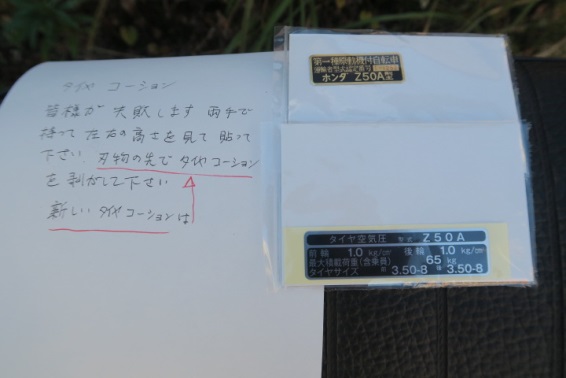 タイヤ コーション
皆様が 失敗します 両手で
持って 左右の高さを見て貼って
下さい 刃物の先で タイヤコーション
を剥がして下さい
新しい タイヤコーションは
第一種原動機付自転車
ホンダ Z50A型
タイヤ空気圧 型式 Z50A
前輪 1.0 kg/㎠ 後輪 1.0 kg/㎠
最大積載荷重(含乗員) 65 kg
タイヤサイズ 前 3.50-8 後 3.50-8